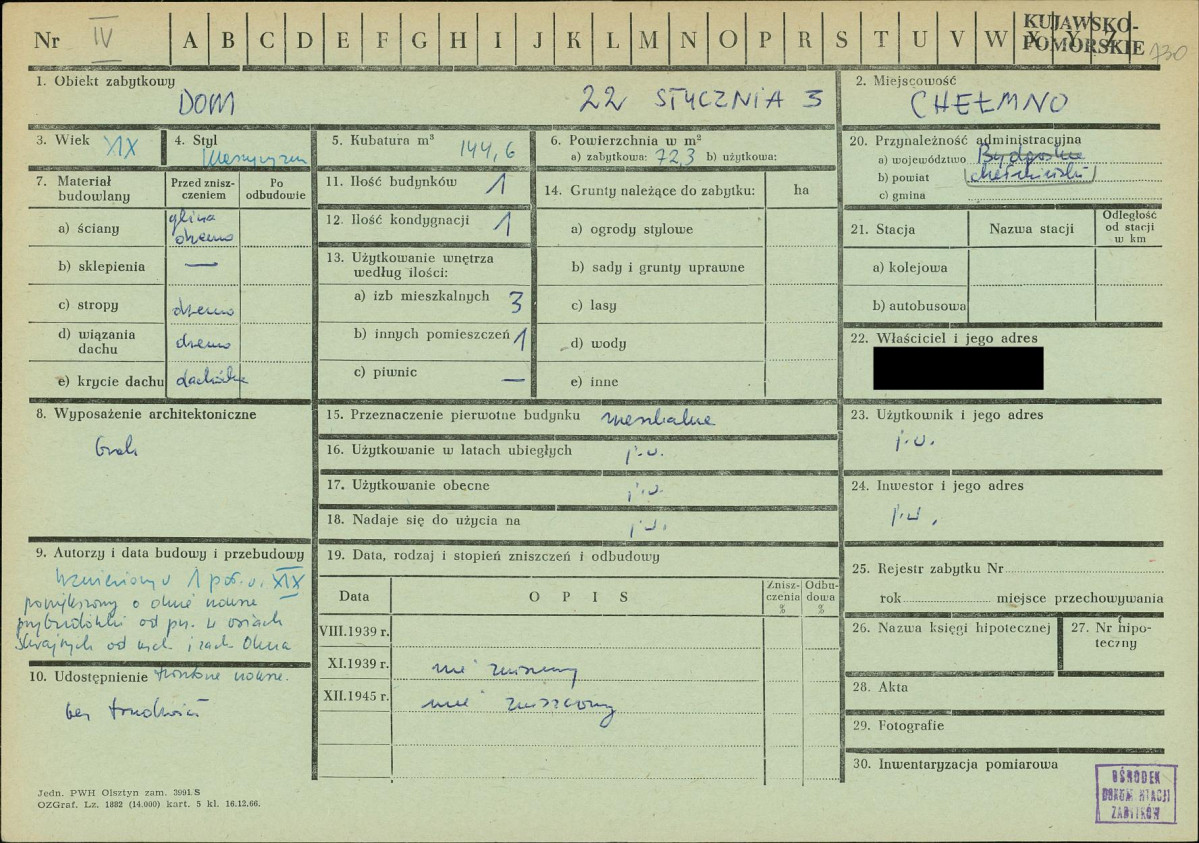 Nr IV A B C D E F G H I J K L M N O P R S T U V W X Y Z KUJAWSKO-
POMORSKIE 730
1. Obiekt zabytkowy
DOM 22 STYCZNIA 3
2. Miejscowość
CHEŁMNO
3. Wiek XIX
4. Styl
5. Kubatura m³ 144,6
6. Powierzchnia w m²
a) zabytkowa: 72,3 b) użytkowa:
7. Materiał
budowlany
Przed znisz-
czeniem
Po
odbudowie
a) ściany glina
drewno
b) sklepienia —
c) stropy drewno
d) wiązania
dachu drewno
e) krycie dachu dachówka
8. Wyposażenie architektoniczne
brak
9. Autorzy i data budowy i przebudowy
Wzniesiony w 1 poł. w. XIX
powiększony o dwie nowsze
przybudówki od pn. w osiach
skrajnych od wsch i zach Okna
frontowe nowsze.
10. Udostępnienie
bez trudności
11. Ilość budynków 1
12. Ilość kondygnacji 1
13. Użytkowanie wnętrza
według ilości:
a) izb mieszkalnych 3
b) innych pomieszczeń 1
c) piwnic —
14. Grunty należące do zabytku: ha
a) ogrody stylowe
b) sady i grunty uprawne
c) lasy
d) wody
e) inne
15. Przeznaczenie pierwotne budynku mieszkalne
16. Użytkowanie w latach ubiegłych j.w.
17. Użytkowanie obecne j.w.
18. Nadaje się do użycia na j.w.
19. Data, rodzaj i stopień zniszczeń i odbudowy
Data OPIS Znisz-
czenia
%
Odbu-
dowa
%
VIII.1939 r.
XI.1939 r. nie zniszczony
XII.1945 r. nie zniszczony
20. Przynależność administracyjna
a) województwo Bydgoskie
b) powiat chełmiński
c) gmina
21. Stacja Nazwa stacji Odległość
od stacji
w km
a) kolejowa
b) autobusowa
22. Właściciel i jego adres
23. Użytkownik i jego adres
j.w.
24. Inwestor i jego adres
j.w.
25. Rejestr zabytku Nr
rok miejsce przechowywania
26. Nazwa księgi hipotecznej
27. Nr hipo-
teczny
28. Akta
29. Fotografie
30. Inwentaryzacja pomiarowa
OŚRODEK
DOKUMENTACJI
ZABYTKÓW
Jedn. PWH Olsztyn zam. 3991.S
OZGraf. Lz. 1882 (14.000) kart. 5 kl. 16.12.66.